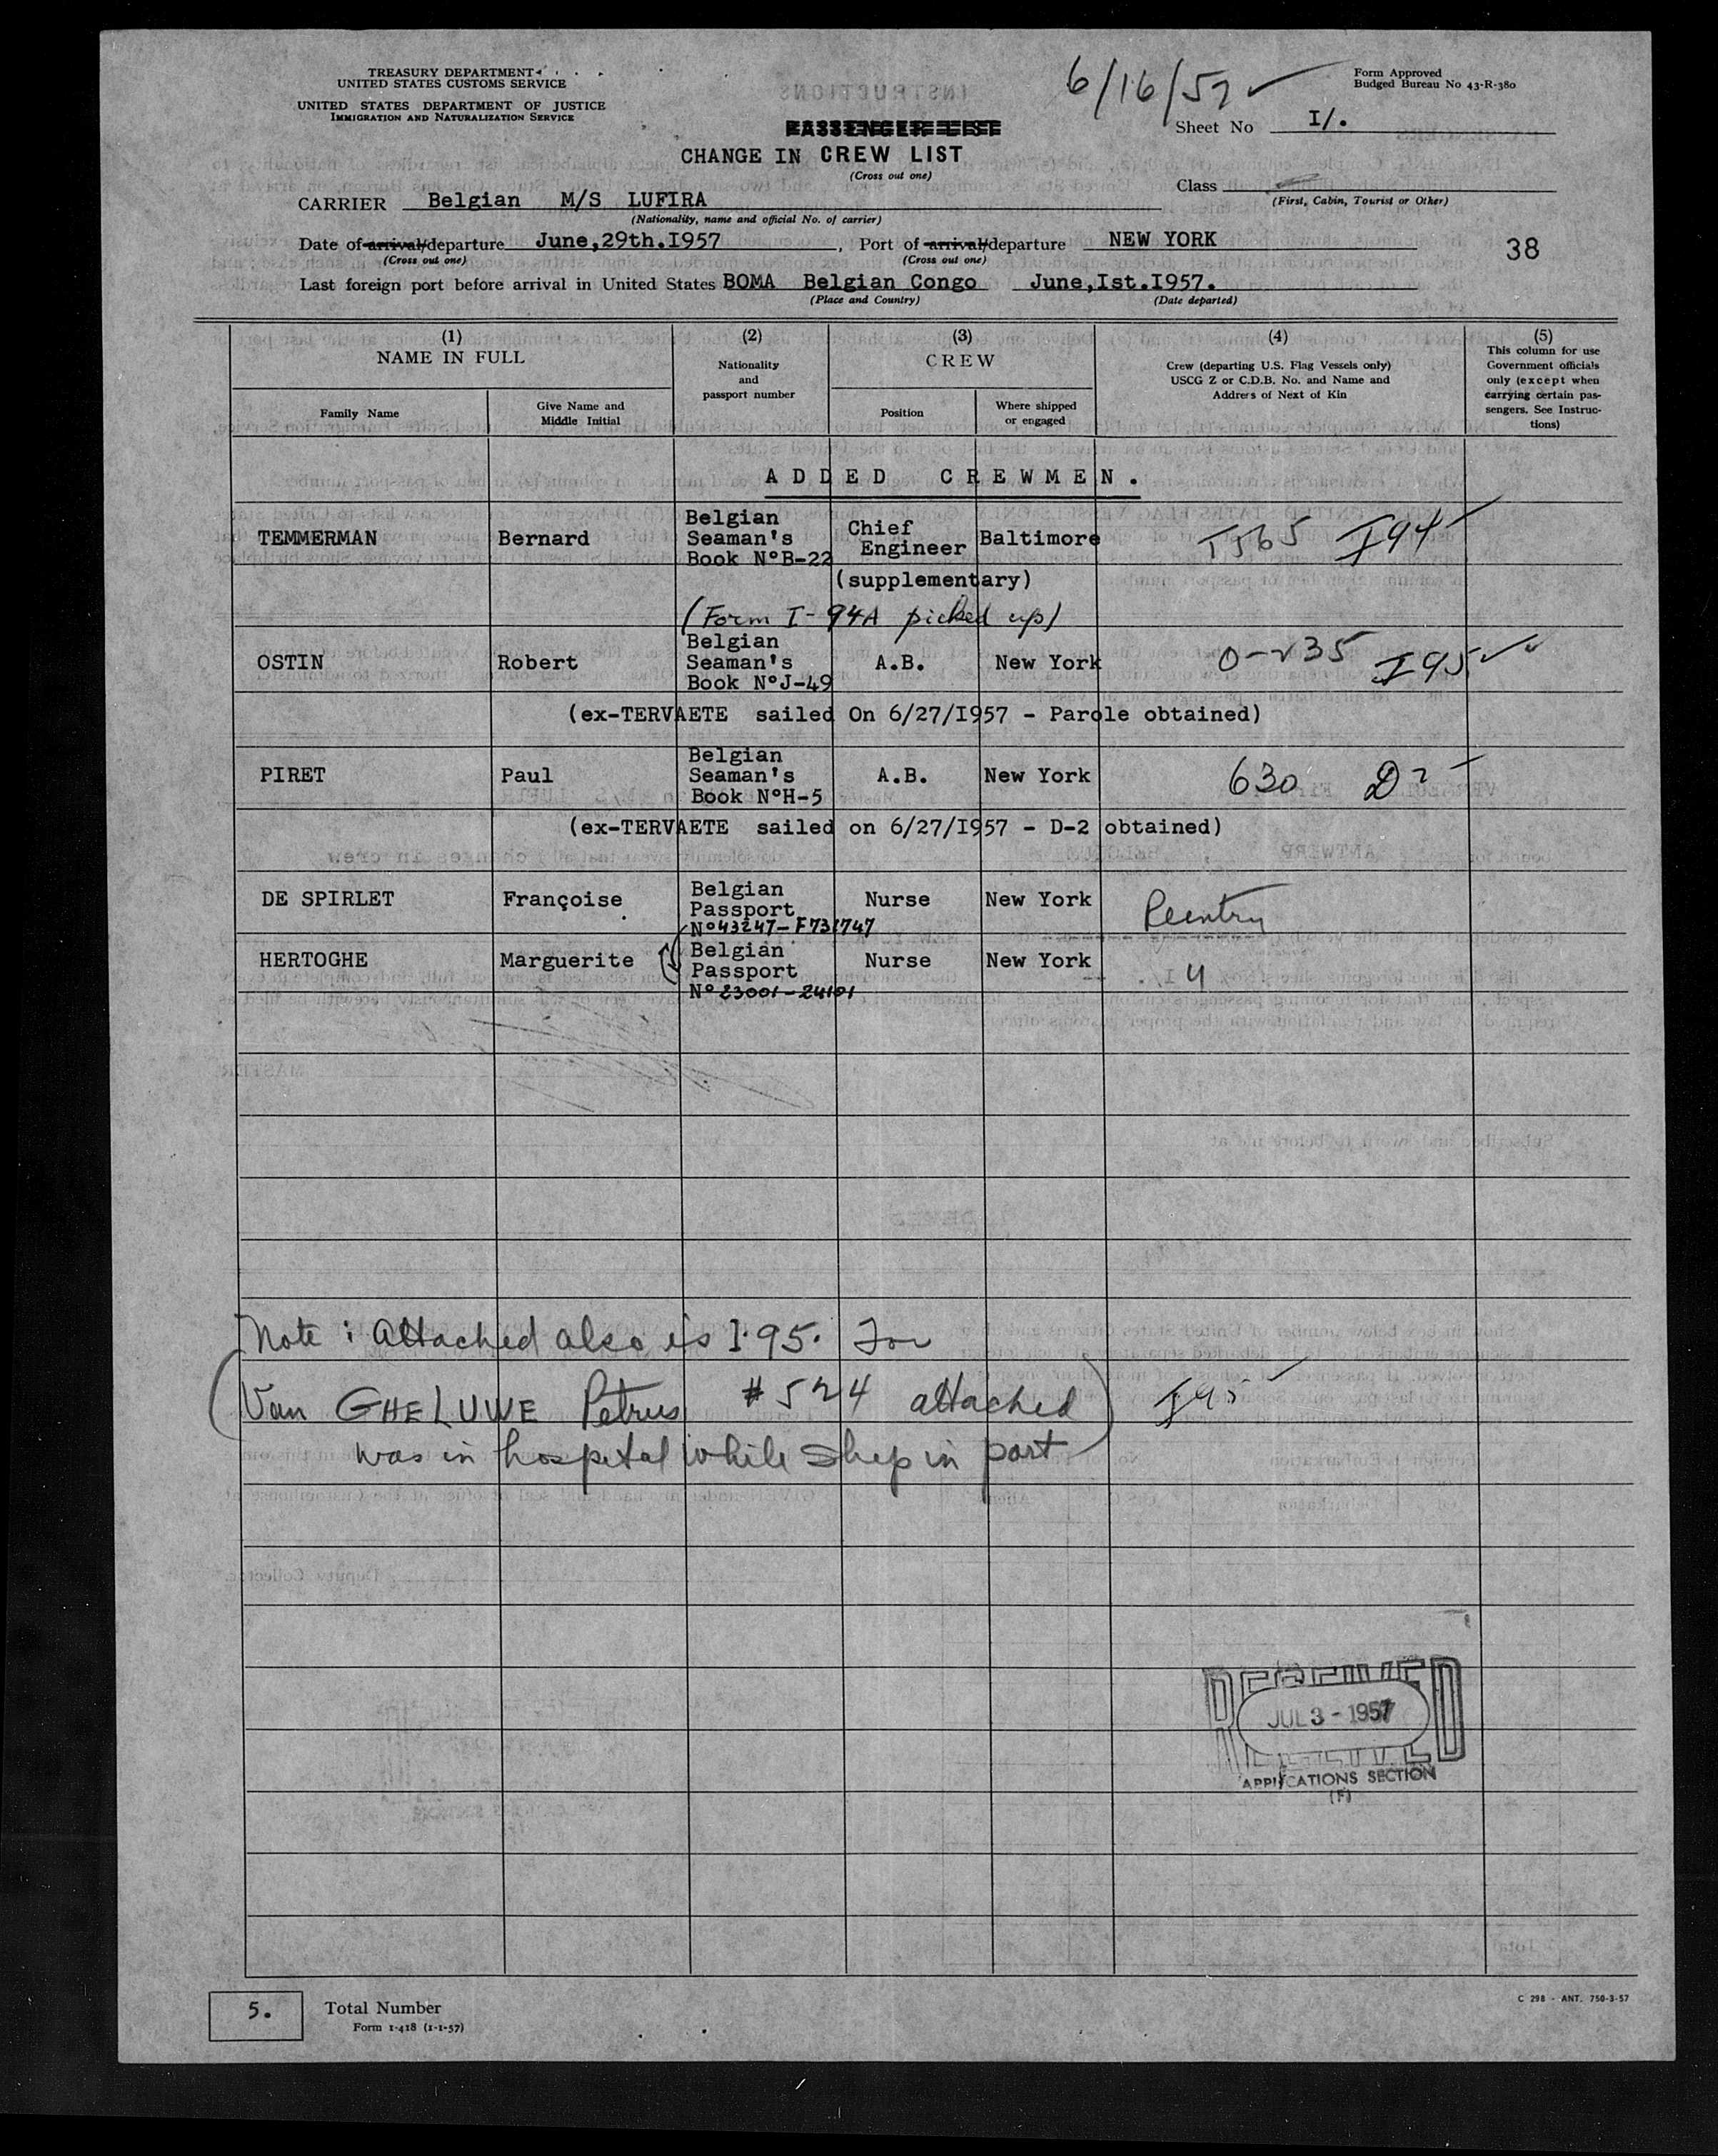 TREASURY DEPARTMENT
UNITED STATES CUSTOMS SERVICE
UNITED STATES DEPARTMENT OF JUSTICE
IMMIGRATION AND NATURALIZATION SERVICE
6/16/57
Form Approved
Budged Bureau No 43-R-380
Sheet No I/.
PASSENGER LIST
CHANGE IN CREW LIST
(Cross out one)
Class
(First, Cabin, Tourist or Other)
CARRIER Belgian M/S LUFIRA
(Nationality, name and official No. of carrier)
Date of arrival/departure June,29th.I957, Port of arrival/departure NEW YORK
(Cross out one) (Cross out one)
38
Last foreign port before arrival in United States BOMA Belgian Congo June,Ist.I957.
(Place and Country) (Date departed)
(1) (2) (3) (4) (5)
NAME IN FULL
Nationality
and
passport number
CREW
Crew (departing U.S. Flag Vessels only)
USCG Z or C.D.B. No. and Name and
Addrers of Next of Kin
This column for use
Government officials
only (except when
carrying certain pas-
sengers. See Instruc-
tions)
Family Name
Give Name and
Middle Initial
Position
Where shipped
or engaged
ADDED CREWMEN.
TEMMERMAN Bernard
Belgian
Seaman's
Book N°B-22
Chief
Engineer
Baltimore
T565 I94
(supplementary)
(Form I-94A picked up)
OSTIN Robert
Belgian
Seaman's
Book N°J-49
A.B. New York
0-235 I95
(ex-TERVAETE sailed On 6/27/I957 - Parole obtained)
PIRET Paul
Belgian
Seaman's
Book N°H-5
A.B. New York
630 D2
(ex-TERVAETE sailed on 6/27/I957 - D-2 obtained)
DE SPIRLET Françoise
Belgian
Passport
N°43247-F731747
Nurse New York
Reentry
HERTOGHE Marguerite
Belgian
Passport
N°23001-24101
Nurse New York
4
Note: Attached also is I-95. For
(Van GHELUWE Petrus #524 attached) I95
was in hospital while ship in port
RECEIVED
JUL 3 - 1957
RECEIVED
APPLICATIONS SECTION
(F)
5. Total Number
Form I-418 (1-1-57)
C 298 - ANT. 750-3-57